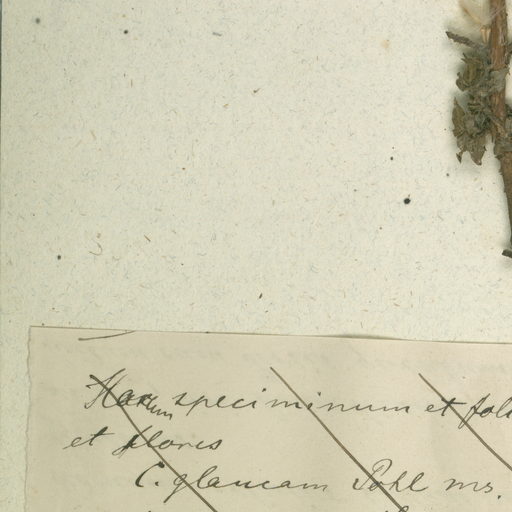 Harum speciminum et foli
et flores
C. glaucam Pohl ms.